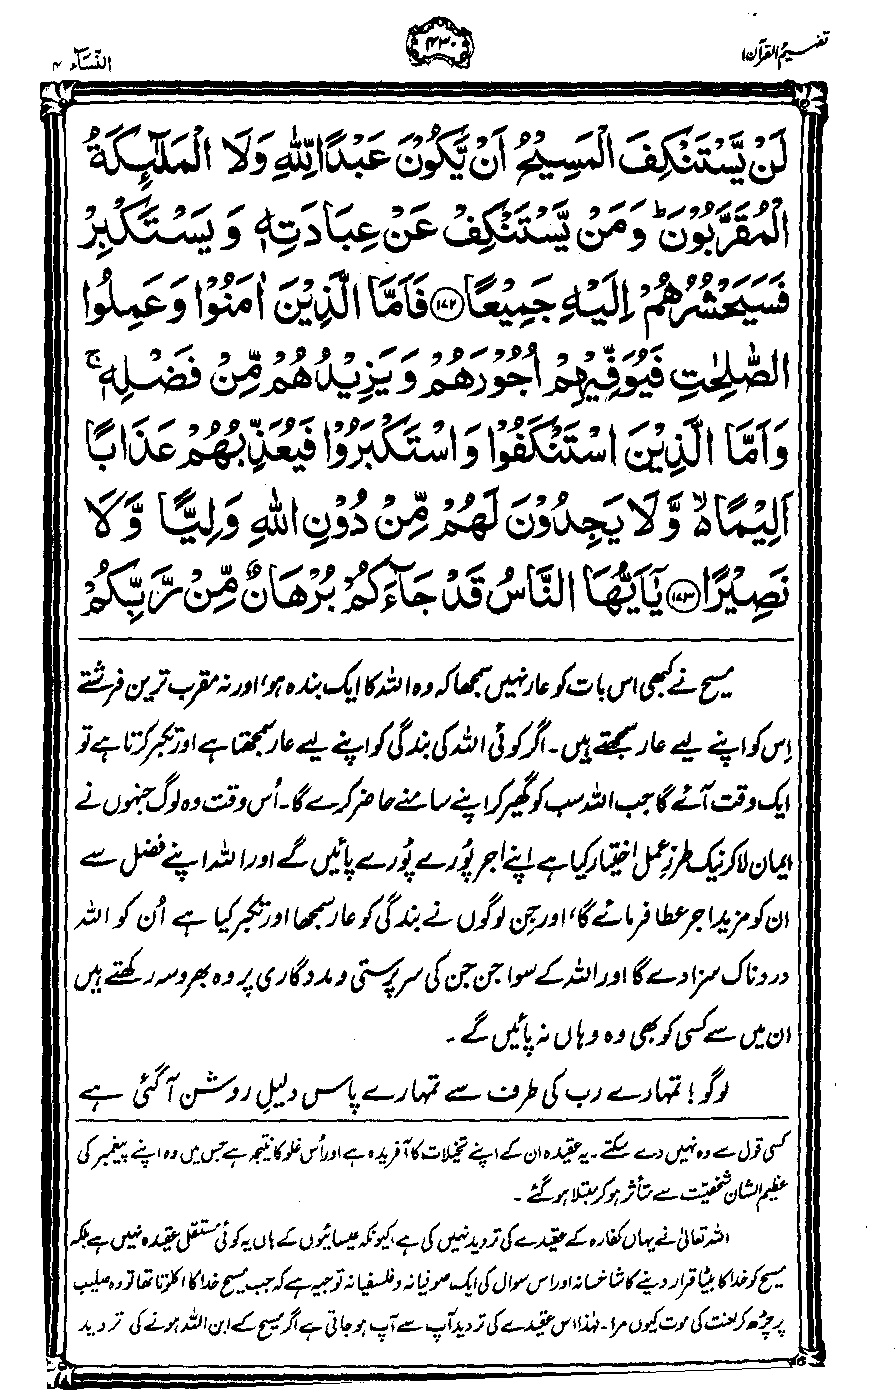 تفہیم القرآن ۱
۴۳۰
النِّسَآء ۴
لَنْ يَّسْتَنْكِفَ الْمَسِيْحُ اَنْ يَّكُوْنَ عَبْدًا لِّلّٰهِ وَلَا الْمَلٰٓئِكَةُ
الْمُقَرَّبُوْنَ ؕ وَمَنْ يَّسْتَنْكِفْ عَنْ عِبَادَتِهٖ وَيَسْتَكْبِرْ
فَسَيَحْشُرُهُمْ اِلَيْهِ جَمِيْعًا ﴿۱۷۲﴾ فَاَمَّا الَّذِيْنَ اٰمَنُوْا وَعَمِلُوا
الصّٰلِحٰتِ فَيُوَفِّيْهِمْ اُجُوْرَهُمْ وَيَزِيْدُهُمْ مِّنْ فَضْلِهٖ ۚ
وَاَمَّا الَّذِيْنَ اسْتَنْكَفُوْا وَاسْتَكْبَرُوْا فَيُعَذِّبُهُمْ عَذَابًا
اَلِيْمًا ۙ۬ وَّلَا يَجِدُوْنَ لَهُمْ مِّنْ دُوْنِ اللّٰهِ وَلِيًّا وَّلَا
نَصِيْرًا ﴿۱۷۳﴾ يٰٓاَيُّهَا النَّاسُ قَدْ جَآءَكُمْ بُرْهَانٌ مِّنْ رَّبِّكُمْ
مسیح نے کبھی اس بات کو عار نہیں سمجھا کہ وہ اللہ کا ایک بندہ ہو، اور نہ مقرب ترین فرشتے
اِس کو اپنے لیے عار سمجھتے ہیں۔ اگر کوئی اللہ کی بندگی کو اپنے لیے عار سمجھتا ہے اور تکبر کرتا ہے تو
ایک وقت آئے گا جب اللہ سب کو گھیر کر اپنے سامنے حاضر کرے گا۔ اُس وقت وہ لوگ جنہوں نے
ایمان لا کر نیک طرزِ عمل اختیار کیا ہے اپنے اجر پُورے پُورے پائیں گے اور اللہ اپنے فضل سے
ان کو مزید اجر عطا فرمائے گا، اور جِن لوگوں نے بندگی کو عار سمجھا اور تکبر کیا ہے اُن کو اللہ
دردناک سزا دے گا اور اللہ کے سوا جن جن کی سرپرستی و مددگاری پر وہ بھروسہ رکھتے ہیں
ان میں سے کسی کو بھی وہ وہاں نہ پائیں گے۔
لوگو! تمہارے رب کی طرف سے تمہارے پاس دلیلِ روشن آگئی ہے
کسی قول سے وہ نہیں دے سکتے۔ یہ عقیدہ ان کے اپنے تخیلات کا آفریدہ ہے اور اُس غلو کا نتیجہ ہے جس میں وہ اپنے پیغمبر کی
عظیم الشان شخصیّت سے متأثر ہو کر مبتلا ہو گئے۔
اللہ تعالیٰ نے یہاں کفارہ کے عقیدے کی تردید نہیں کی ہے، کیونکہ عیسائیوں کے ہاں یہ کوئی مستقل عقیدہ نہیں ہے بلکہ
مسیح کو خدا کا بیٹا قرار دینے کا شاخسانہ اور اس سوال کی ایک صوفیانہ و فلسفیانہ توجیہ ہے کہ جب مسیح خدا کا اکلوتا تھا تو وہ صلیب
پر چڑھ کر لعنت کی موت کیوں مرا۔ لہٰذا اس عقیدے کی تردید آپ سے آپ ہو جاتی ہے اگر مسیح کے ابن اللہ ہونے کی تردید